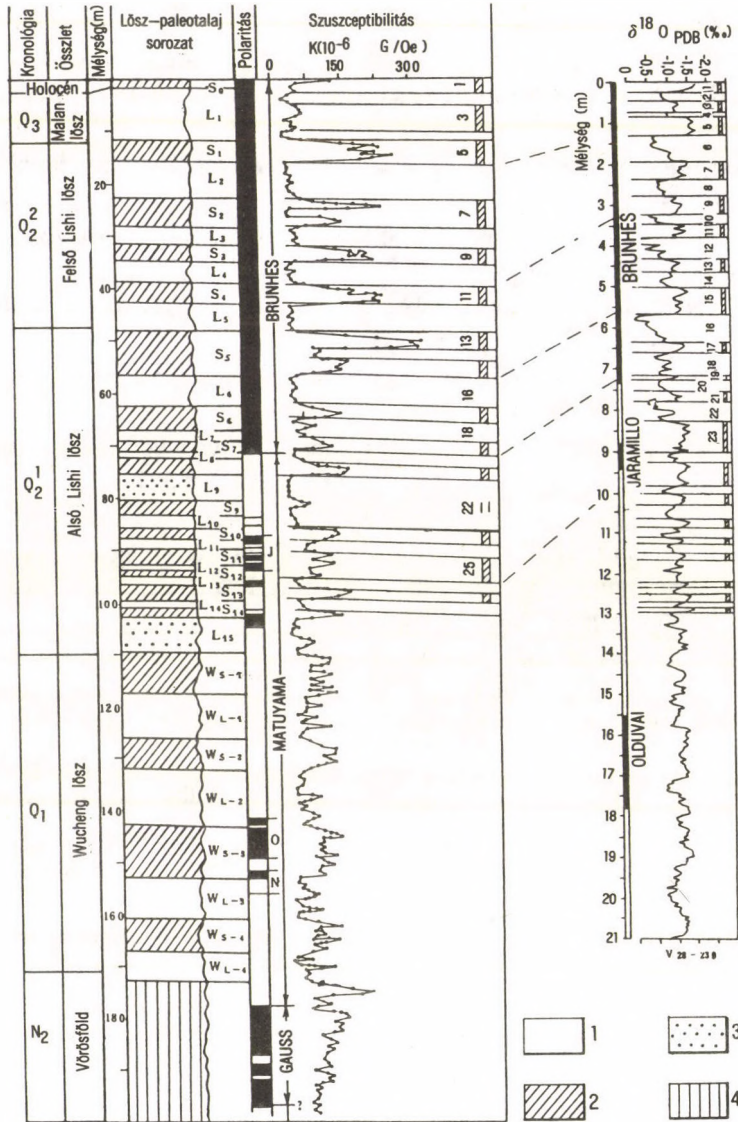 Kronológia
Összlet
Mélység(m)
Lősz–paleotalaj
sorozat
Polaritás
Szuszceptibilitás
K(10⁻⁶ G/Oe)
0 150 300
δ¹⁸O PDB (‰)
0 -0,5 -1,0 -1,5 -2,0
Mélység (m)
Holocén
Q₃
Malan
lősz
Q₂²
Felső Lishi lősz
Q₂¹
Alsó Lishi lősz
Q₁
Wucheng lősz
N₂
Vörösföld
20
40
60
80
100
120
140
160
180
S₀
L₁
S₁
L₂
S₂
L₃
S₃
L₄
S₄
L₅
S₅
L₆
S₆
L₇
S₇
L₈
L₉
S₉
L₁₀
S₁₀
L₁₁
S₁₁
L₁₂
S₁₂
L₁₃
S₁₃
L₁₄
S₁₄
L₁₅
W S-1
W L-1
W S-2
W L-2
W S-3
W L-3
W S-4
W L-4
BRUNHES
MATUYAMA
GAUSS
J
O
N
?
1
3
5
7
9
11
13
16
18
22
25
BRUNHES
JARAMILLO
OLDUVAI
0
1
2
3
4
5
6
7
8
9
10
11
12
13
14
15
16
17
18
19
20
21
1
2
3
4
5
6
7
8
9
10
11
12
13
14
15
16
17
18
19
20
21
22
23
V 28 - 239
1
3
2
4